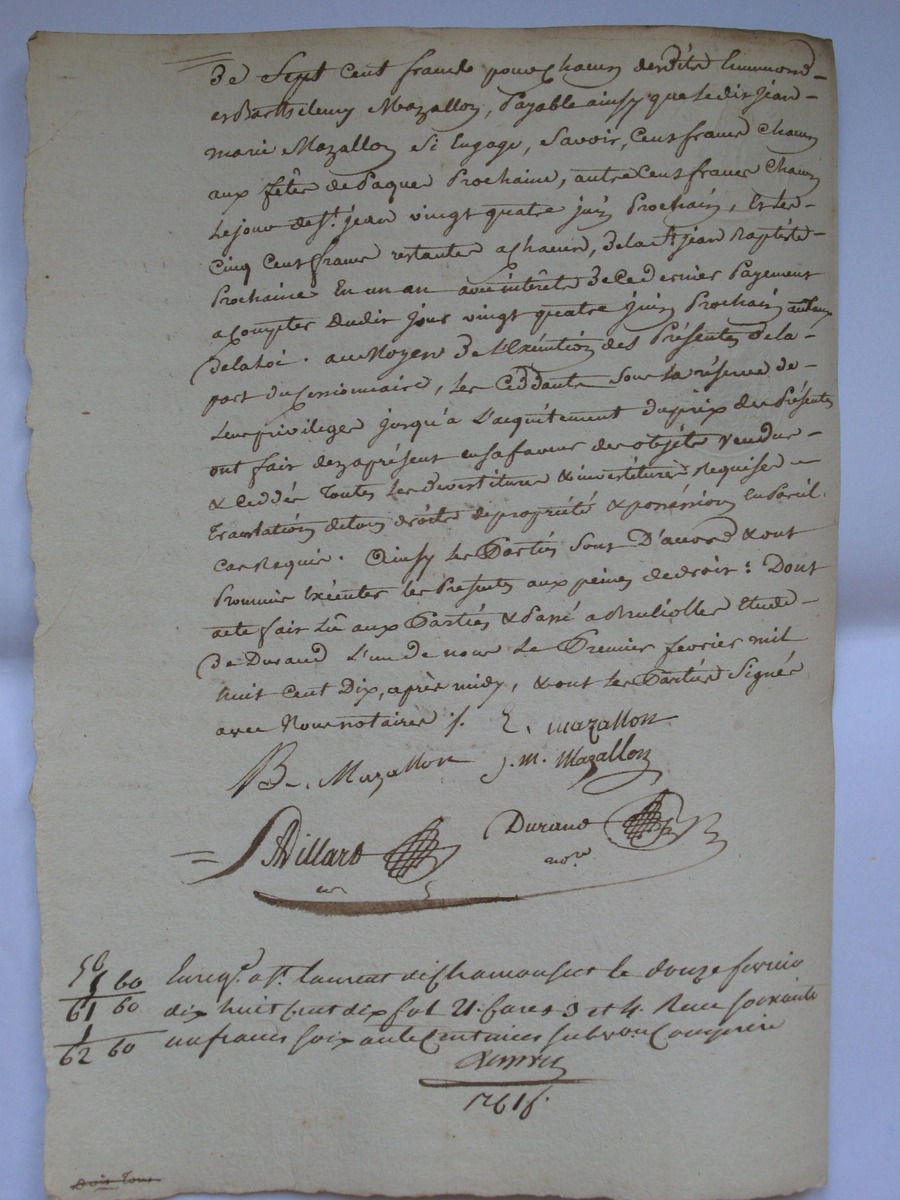 De Sept cent francs pour chacun desdits Emmond –
et Barthelemy Mazallon, Payable ainsy que ledit Jean –
marie Mazallon Si Engage, Savoir, Cent francs chacun
aux fêtes de Paques Prochaine, autre Cent francs Chacun
Le jour de St. jean vingt quatre juin Prochain, Et Les –
Cinq Cent francs restants a chacun, de la St jean Baptiste –
Prochaine En un an avec intérêts De Ce dernier Payement
a Compter dudit jour vingt quatre juin Prochain au taux
de la Loi . au Moyen De L'Exécution des Présentes De la –
part du Cessionnaire, Les Céddants Sous La réserve de –
Leur privileges jusqu'à L'acquitement du prix des Présentes
ont fait dez aprésent en sa faveur des objets Vendus –
& Ceddés Toutes Les devestiture & investiture Requise –
Translation de tous droits de propriété & possession En Pareil
Cas Requis . Ainsy Les Parties Sont D'accord & ont
Promis Exécuter les Présentes aux peines de droit : Dont
acte fait Lû aux Parties & Passé a Etude –
De Durand L'un de nous Le Premier fevrier mil
huit Cent Dix, après midy, & ont Les Parties Signé
avec Nous notaires ./. E. mazallon
B. Mazallon J. m. Mazallon
Villard Durand
nore
Enregt. a St. laurent le douze fevrier
61 60 dix huit Cent dix fol 21. Cases 3 et 4. Recu soixante
1
62 60 un francs soixante Centimes subvon. Comprise